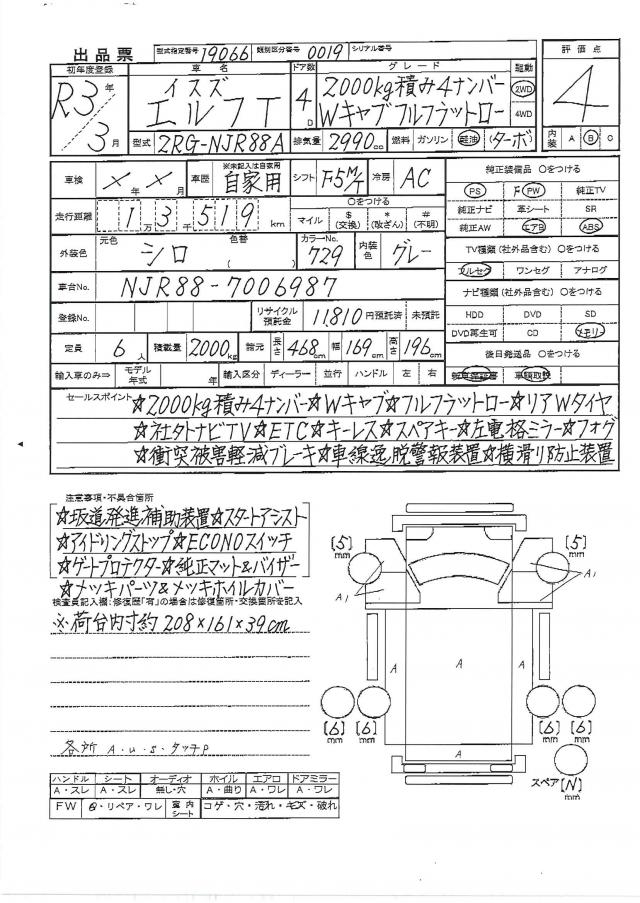 出品票 型式指定番号 19066 類別区分番号 0019 シリアル番号
初年度登録 車名 ドア数 グレード 駆動 評価点
R3年 イスズ 2000kg積み4ナンバー 2WD
3月 エルフT 4D Wキャブフルフラットロー 4WD 4
型式 2RG-NJR88A 排気量 2990cc 燃料 ガソリン 軽油 (ターボ) 内装 A B C
車検 ×年×月 車歴 ※未記入は自家用 自家用 シフト F5M/T 冷房 AC 純正装備品 ○をつける
PS F PW 純正TV
走行距離 1万3千519km ○をつける 純正ナビ 革シート SR
マイル $(交換) *(改ざん) #(不明) 純正AW エアB ABS
外装色 元色 シロ 色替( ) カラーNo. 729 内装色 グレー TV種類(社外品含む) ○をつける
フルセグ ワンセグ アナログ
車台No. NJR88-7006987 ナビ種類(社外品含む) ○をつける
登録No. リサイクル預託金 11,810円預託済 未預託 HDD DVD SD
DVD再生可 CD メモリ
定員 6人 積載量 2000kg 諸元 長さ 468cm 幅 169cm 高さ 196cm 後日発送品 ○をつける
輸入車のみ⇒ モデル年式 年 輸入区分 ディーラー 並行 ハンドル 左 右 新車保証書 車輌取説
セールスポイント ☆2000kg積み4ナンバー☆Wキャブ☆フルフラットロー☆リアWタイヤ
☆社外ナビTV☆ETC☆キーレス☆スペアキー☆左電格ミラー☆フォグ
☆衝突被害軽減ブレーキ☆車線逸脱警報装置☆横滑り防止装置
注意事項・不具合箇所
☆坂道発進補助装置☆スタートアシスト
☆アイドリングストップ☆ECONOスイッチ
☆ゲートプロテクター☆純正マット&バイザー
☆メッキパーツ&メッキホイルカバー
検査員記入欄:修復歴「有」の場合は修復箇所・交換箇所を記入
※荷台内寸約208×161×39cm
各所 A・U・S・タッチP
[5]mm [5]mm
A1 A1
A A A
[6]mm [6]mm [6]mm [6]mm
A
スペア [N]mm
ハンドル シート オーディオ ホイル エアロ ドアミラー
A・スレ A・スレ 無し・穴 A・曲り A・ワレ A・ワレ
FW ・リペア・ワレ 室内シート コゲ・穴・汚れ・キズ・破れ